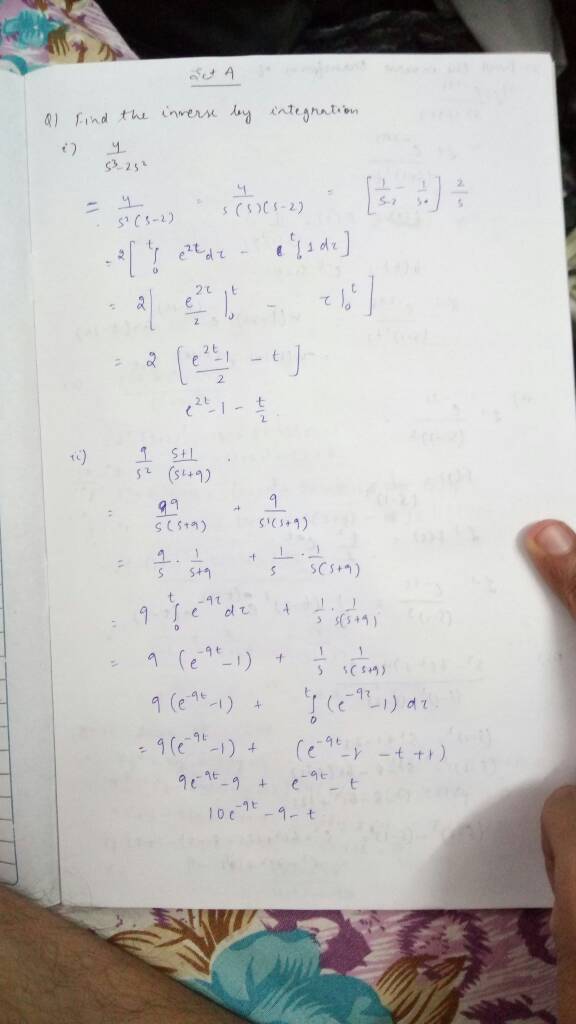 Set A
Q) Find the inverse by integration
i) 4/(s³-2s²)
= 4/(s²(s-2)) = 4/(s(s)(s-2)) = [1/(s-2) - 1/s] 2/s
= 2[∫₀ᵗ e^(2τ) dτ - ∫₀ᵗ 1 dτ]
= 2[e^(2τ)/2 |₀ᵗ - τ|₀ᵗ]
= 2 [(e^(2t)-1)/2 - t]
e^(2t)-1 - t/2.
ii) 9/s² (s+1)/(s²+9).
= 9/(s(s+9)) + 9/(s²(s+9))
= 9/s · 1/(s+9) + 1/s · 1/(s(s+9))
= 9 ∫₀ᵗ e^(-9τ) dτ + 1/s · 1/(s(s+9))
= 9 (e^(-9t)-1) + 1/s 1/(s(s+9))
9(e^(-9t)-1) + ∫₀ᵗ (e^(-9τ)-1) dτ
= 9(e^(-9t)-1) + (e^(-9t)-1-t+1)
9e^(-9t)-9 + e^(-9t)-t
10e^(-9t)-9-t